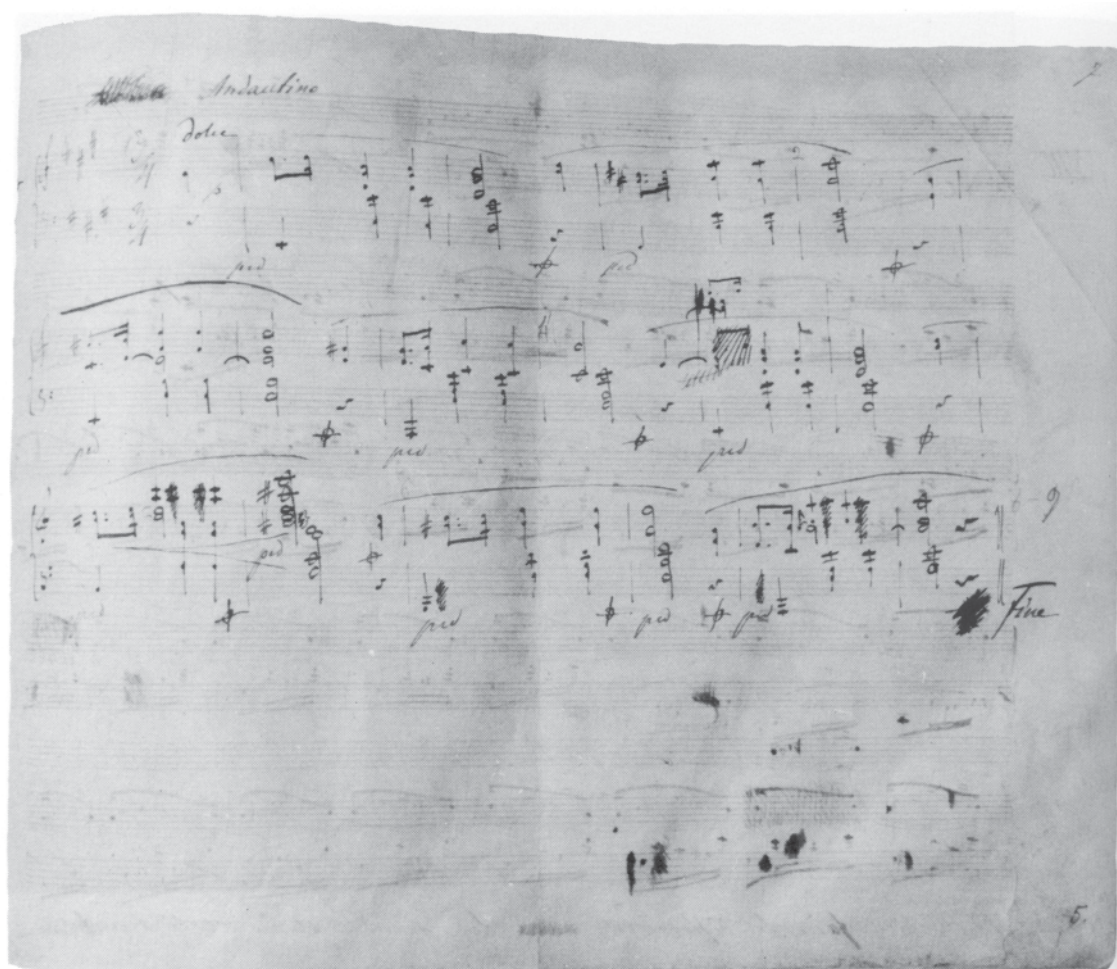 7
Andantino
dolce
ped ped
ped ped ped
9
ped
ped ped ped Fine
5.